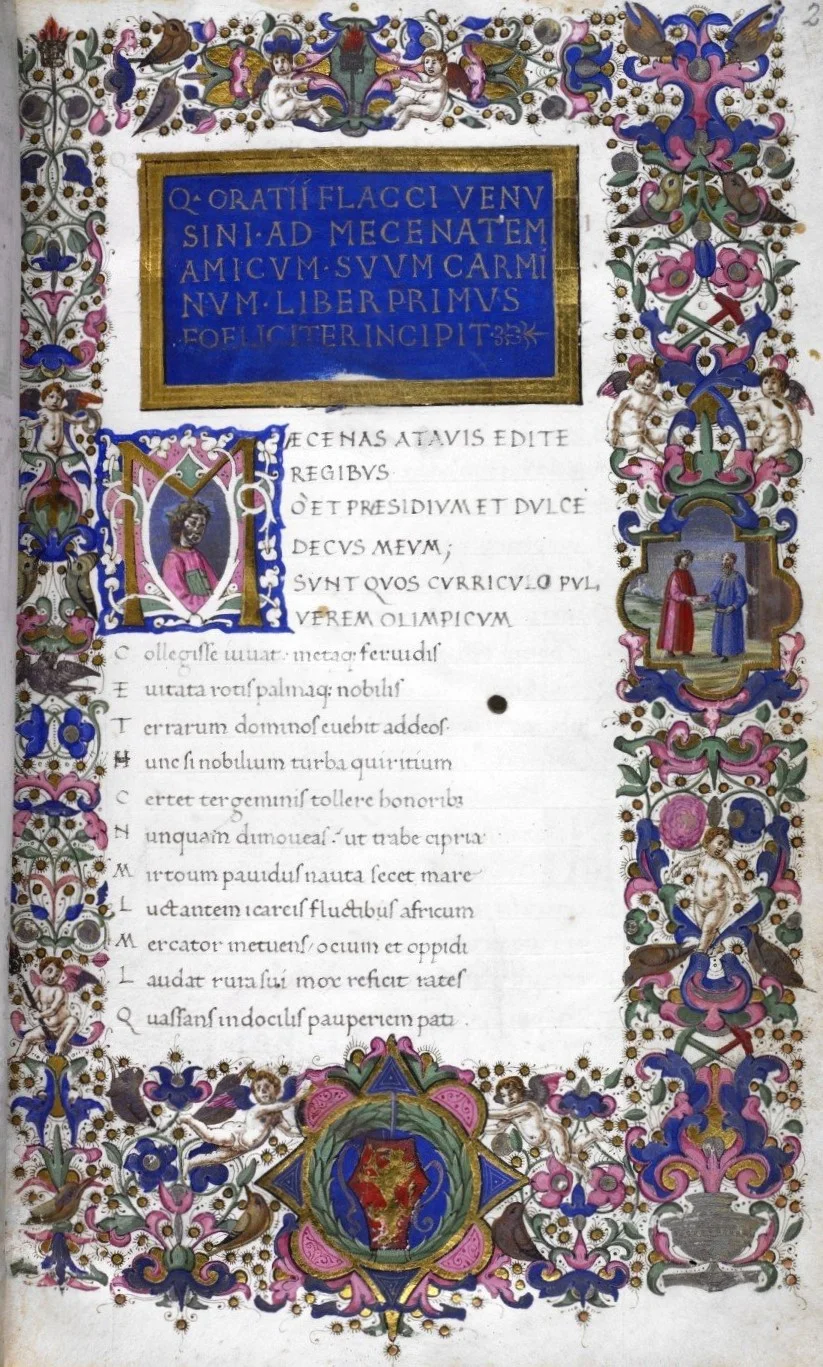 2
Q· ORATII FLACCI VENV
SINI·AD MECENATEM
AMICVM·SVVM CARMI
NVM·LIBER PRIMVS
FOELICITER INCIPIT
MÆCENAS ATAVIS EDITE
REGIBVS
O ET PRÆSIDIVM ET DVLCE
DECVS MEVM;
SVNT QVOS CVRRICVLO PVL,
VEREM OLIMPICVM
Collegisse iuuat: metaq; feruidis
Euitata rotis palmaq; nobilis
Terrarum dominos euehit addeos·
Hunc si nobilium turba quiritium
Certet tergeminis tollere honorib;
Nunquam dimoueas: ut trabe cipria
Mirtoum pauidus nauta secet mare
Luctantem icareis fluctibus africum
Mercator metuens/ ocium et oppidi
Laudat rura sui mox reficit rates
Quassans indocilis pauperiem pati.